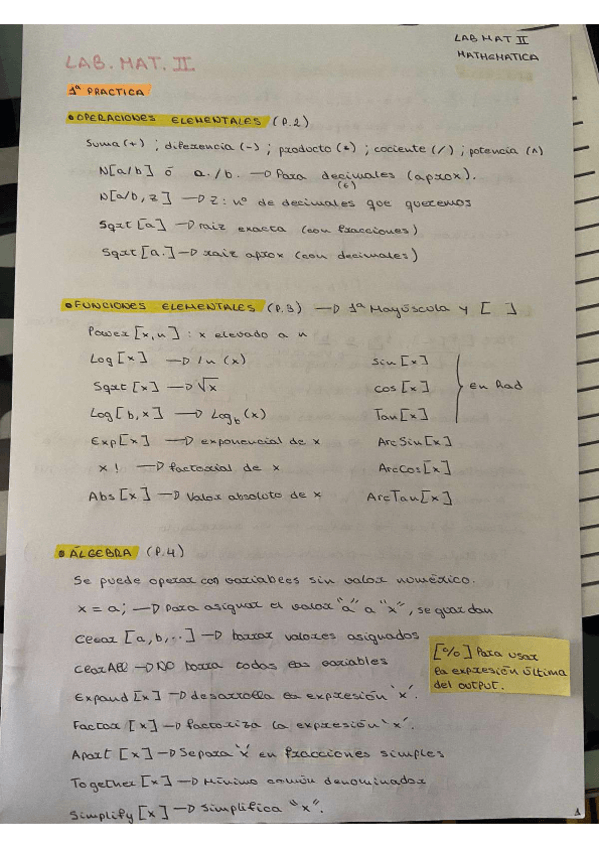 LAB MAT II
MATHEMATICA
LAB. MAT. II.
1ª PRACTICA
• OPERACIONES ELEMENTALES (P.2)
Suma (+) ; diferencia (-) ; producto (*) ; cociente (/) ; potencia (^)
N[a/b] ó a./b. → Para decimales (aprox).
(6)
N[a/b, z] → z: nº de decimales que queremos
Sqrt [a] → raiz exacta (con fracciones)
Sqrt [a.] → raiz aprox (con decimales)
• FUNCIONES ELEMENTALES (P.3) → 1ª Mayúscula y [ ]
Power [x,n] : x elevado a n
Log [x] → ln (x)
Sqrt [x] → √x
Log [b,x] → Log_b (x)
Exp[x] → exponencial de x
x ! → factorial de x
Abs [x] → Valor absoluto de x
Sin [x]
Cos [x]
Tan [x]
en Rad
ArcSin [x]
ArcCos [x]
ArcTan [x]
• ÁLGEBRA (P.4)
Se puede operar con variables sin valor numérico.
x = a; → Para asignar el valor "a" a "x", se guardan
Clear [a,b,..] → borrar valores asignados
ClearAll → NO borra todas las variables
Expand [x] → desarrolla la expresión 'x'.
Factor [x] → factoriza la expresión 'x'.
Apart [x] → Separa 'x' en fracciones simples
Together [x] → Mínimo común denominador
Simplify [x] → Simplifica "x".
[%] Para usar
la expresión última
del output.
1